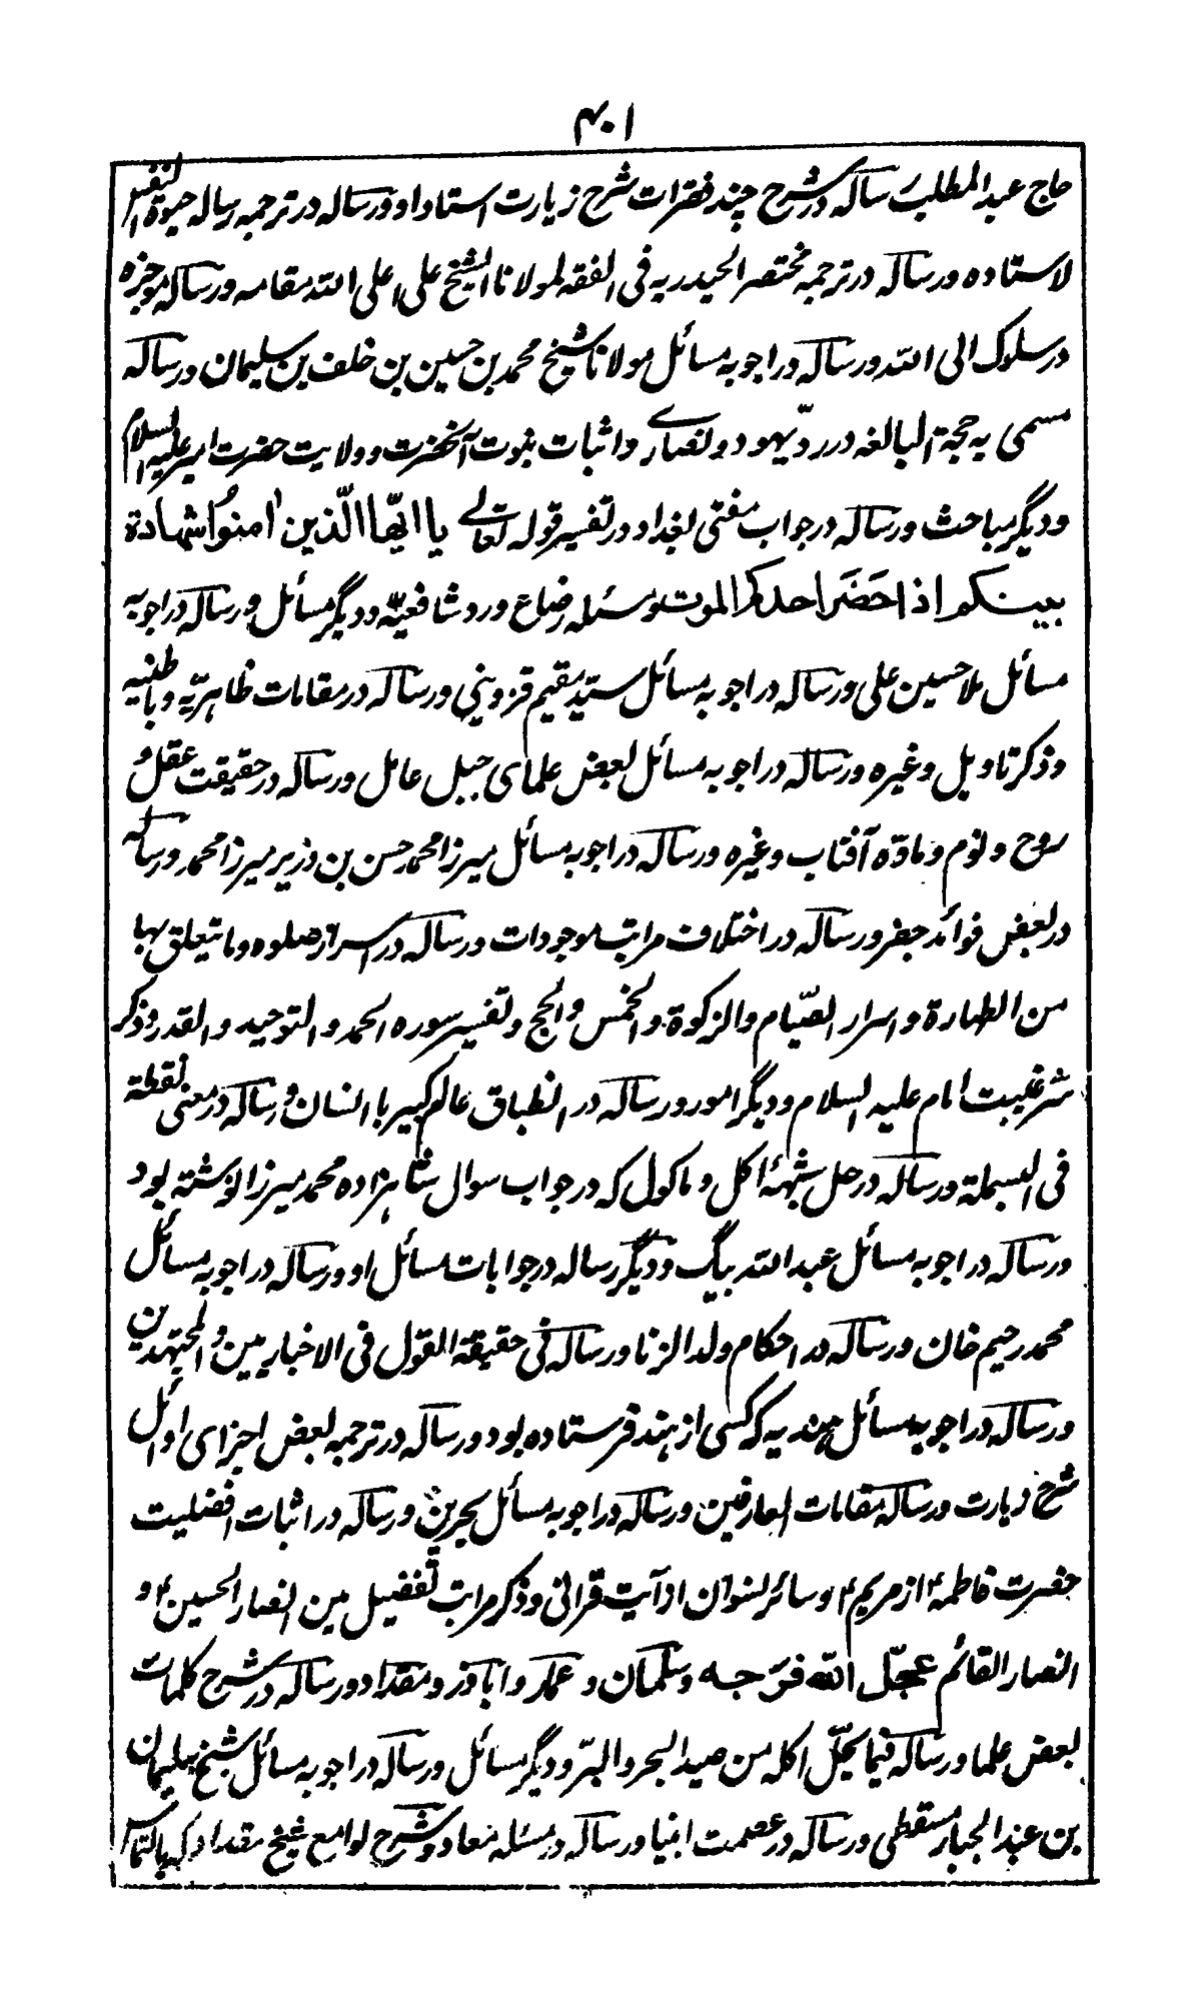 ۴۰۱
حاج عبد المطلب رساله در شرح چند فقرات شرح زیارت استاد او و رساله در ترجمه رساله حیوة النفس
لاستاده و رساله در ترجمه مختصر الحیدریه فی الفقه لمولانا الشیخ علی اعلی الله مقامه و رساله موجزه
در سلوک الی الله و رساله در اجوبه مسائل مولانا شیخ محمد بن حسین بن خلف بن سلیمان و رساله
مسمی به حجة البالغه در ردّ یهود و نصاری و اثبات نبوت آنحضرت و ولایت حضرت امیر علیه السلام
و دیگر مباحث و رساله در جواب مفتی بغداد در تفسیر قوله تعالی یا ایّها الّذین اٰمنُوا شهادة
بینکم اذا حَضَرَ احدکم الموت و مسئله رضاع و رد شافعیّه و دیگر مسائل و رساله در اجوبه
مسائل ملا حسین علی و رساله در اجوبه مسائل سیّد مقیم قزوینی و رساله در مقامات ظاهریّه و باطنیه
و ذکر تاویل و غیره و رساله در اجوبه مسائل بعض علمای جبل عامل و رساله در حقیقت عقل و
روح و نوم و مادّه آفتاب و غیره و رساله در اجوبه مسائل میرزا محمد حسن بن وزیر میرزا محمد و رساله
در بعض فوائد جفر و رساله در اختلاف مراتب موجودات و رساله در اسرار صلوه و ما یتعلق بها
من الطهارة و اسرار الصّیام و الزکوة و الخمس و الحج و تفسیر سوره الحمد و التوحید و القدر و ذکر
سر غیبت امام علیه السلام و دیگر امور و رساله در انطباق عالم کبیر با انسان و رساله در معنی نقطة
فی البسملة و رساله در حل شبههٔ اکل و ماکول که در جواب سوال شاهزاده محمد میرزا نوشته بود
و رساله در اجوبه مسائل عبد الله بیگ و دیگر رساله در جوابات مسائل او و رساله در اجوبه مسائل
محمد رحیم خان و رساله در احکام ولد الزنا و رساله فی حقیقة القول فی الاخباریین و المجتهدین
و رساله در اجوبه مسائل هندیه که کسی از هند فرستاده بود و رساله در ترجمه بعض اجزای اوائل
شرح زیارت و رساله مقامات العارفین و رساله در اجوبه مسائل بحرین و رساله در اثبات افضلیت
حضرت فاطمه؏ از مریم؏ و سائر نسوان از آیت قرآنی و ذکر مراتب تفضیل بین انصار الحسین؏ و
انصار القائم عجّل الله فرَجه و سلمان و عمار و اباذر و مقداد و رساله در شرح کلمات
بعض علما و رساله فیما یحلّ اکله من صید البحر و البرّ و دیگر مسائل و رساله در اجوبه مسائل شیخ سلیمان
بن عبد الجبار مسقطی و رساله در عصمت انبیا و رساله در مسئله معاد و شرح لوامع شیخ مقداد که